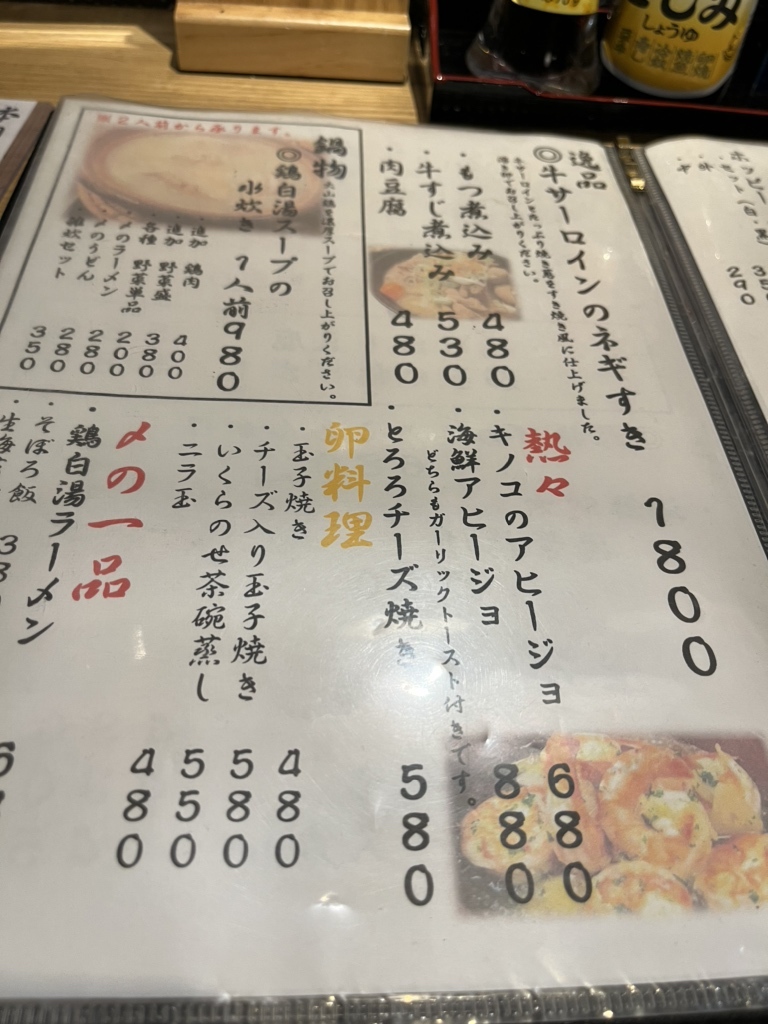 しょうゆ
逸品
◎牛サーロインのネギすき 1800
牛サーロインをたっぷり焼き葱をすき焼き風に仕上げました。
溶き卵でお召し上がりください。
・もつ煮込み 480
・牛すじ煮込み 530
・肉豆腐 480
※2人前から承ります。
鍋物
大山鶏を濃厚スープでお召し上がりください。
◎鶏白湯スープの
水炊き 1人前980
・追加 鶏肉 400
・追加 野菜盛 380
・各種 野菜単品 200
・〆のラーメン 280
・〆のうどん 280
・雑炊セット 350
熱々
・キノコのアヒージョ 680
・海鮮アヒージョ 880
どちらもガーリックトースト付きです。
・とろろチーズ焼き 580
卵料理
・玉子焼き 480
・チーズ入り玉子焼き 580
・いくらのせ茶碗蒸し 550
・ニラ玉 480
〆の一品
・鶏白湯ラーメン
・そぼろ飯
290